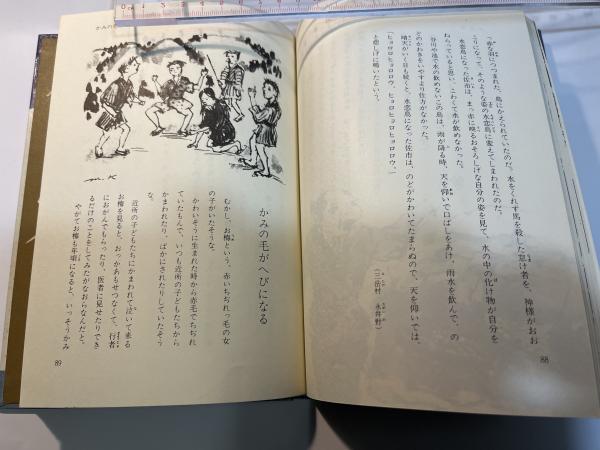 「赤い羽につつまれた、鳥にかえられていたのだ。水をくれず馬を殺した怠け者を、神様がおお
こりになって、そのような姿の水恋鳥に変えてしまわれたのだ。
水恋鳥になった佐市は、まっ赤に映るおそろしげな自分の姿を見て、水の中の化け物が自分を
ねらっていると思い、こわくて水が飲めなかった。
谷川や池で水の飲めないこの鳥は、雨が降る時、天を仰いで口ばしをあけ、雨水を飲んで、の
どのかわきをいやすより仕方がなかった。
晴天がいく日も続くと、水恋鳥になった佐市は、のどがかわいてたまらぬので、天を仰いでは、
「ヒョロロヒョロヒョロロウ、ヒョロロヒョロヒョロロウ。」
と悲しげに鳴いたという。
(三岳村 永井野)
88
かみの
m.K
かみの毛がへびになる
むかし、お梅という、赤いちぢれっ毛の女
の子がいたそうな。
かわいそうに生まれた時から赤毛でちぢれ
ていたもんで、いつも近所の子どもたちから
かまわれたり、ばかにされたりしていたそう
な。
近所の子どもたちにかまわれて泣いて来る
お梅を見ると、おっかあもせつなくて、行者
におがんでもらったり、医者に見せたりでき
るだけのことをしてみたがなおらなんだと。
やがてお梅も年頃になると、いっそうかみ
89